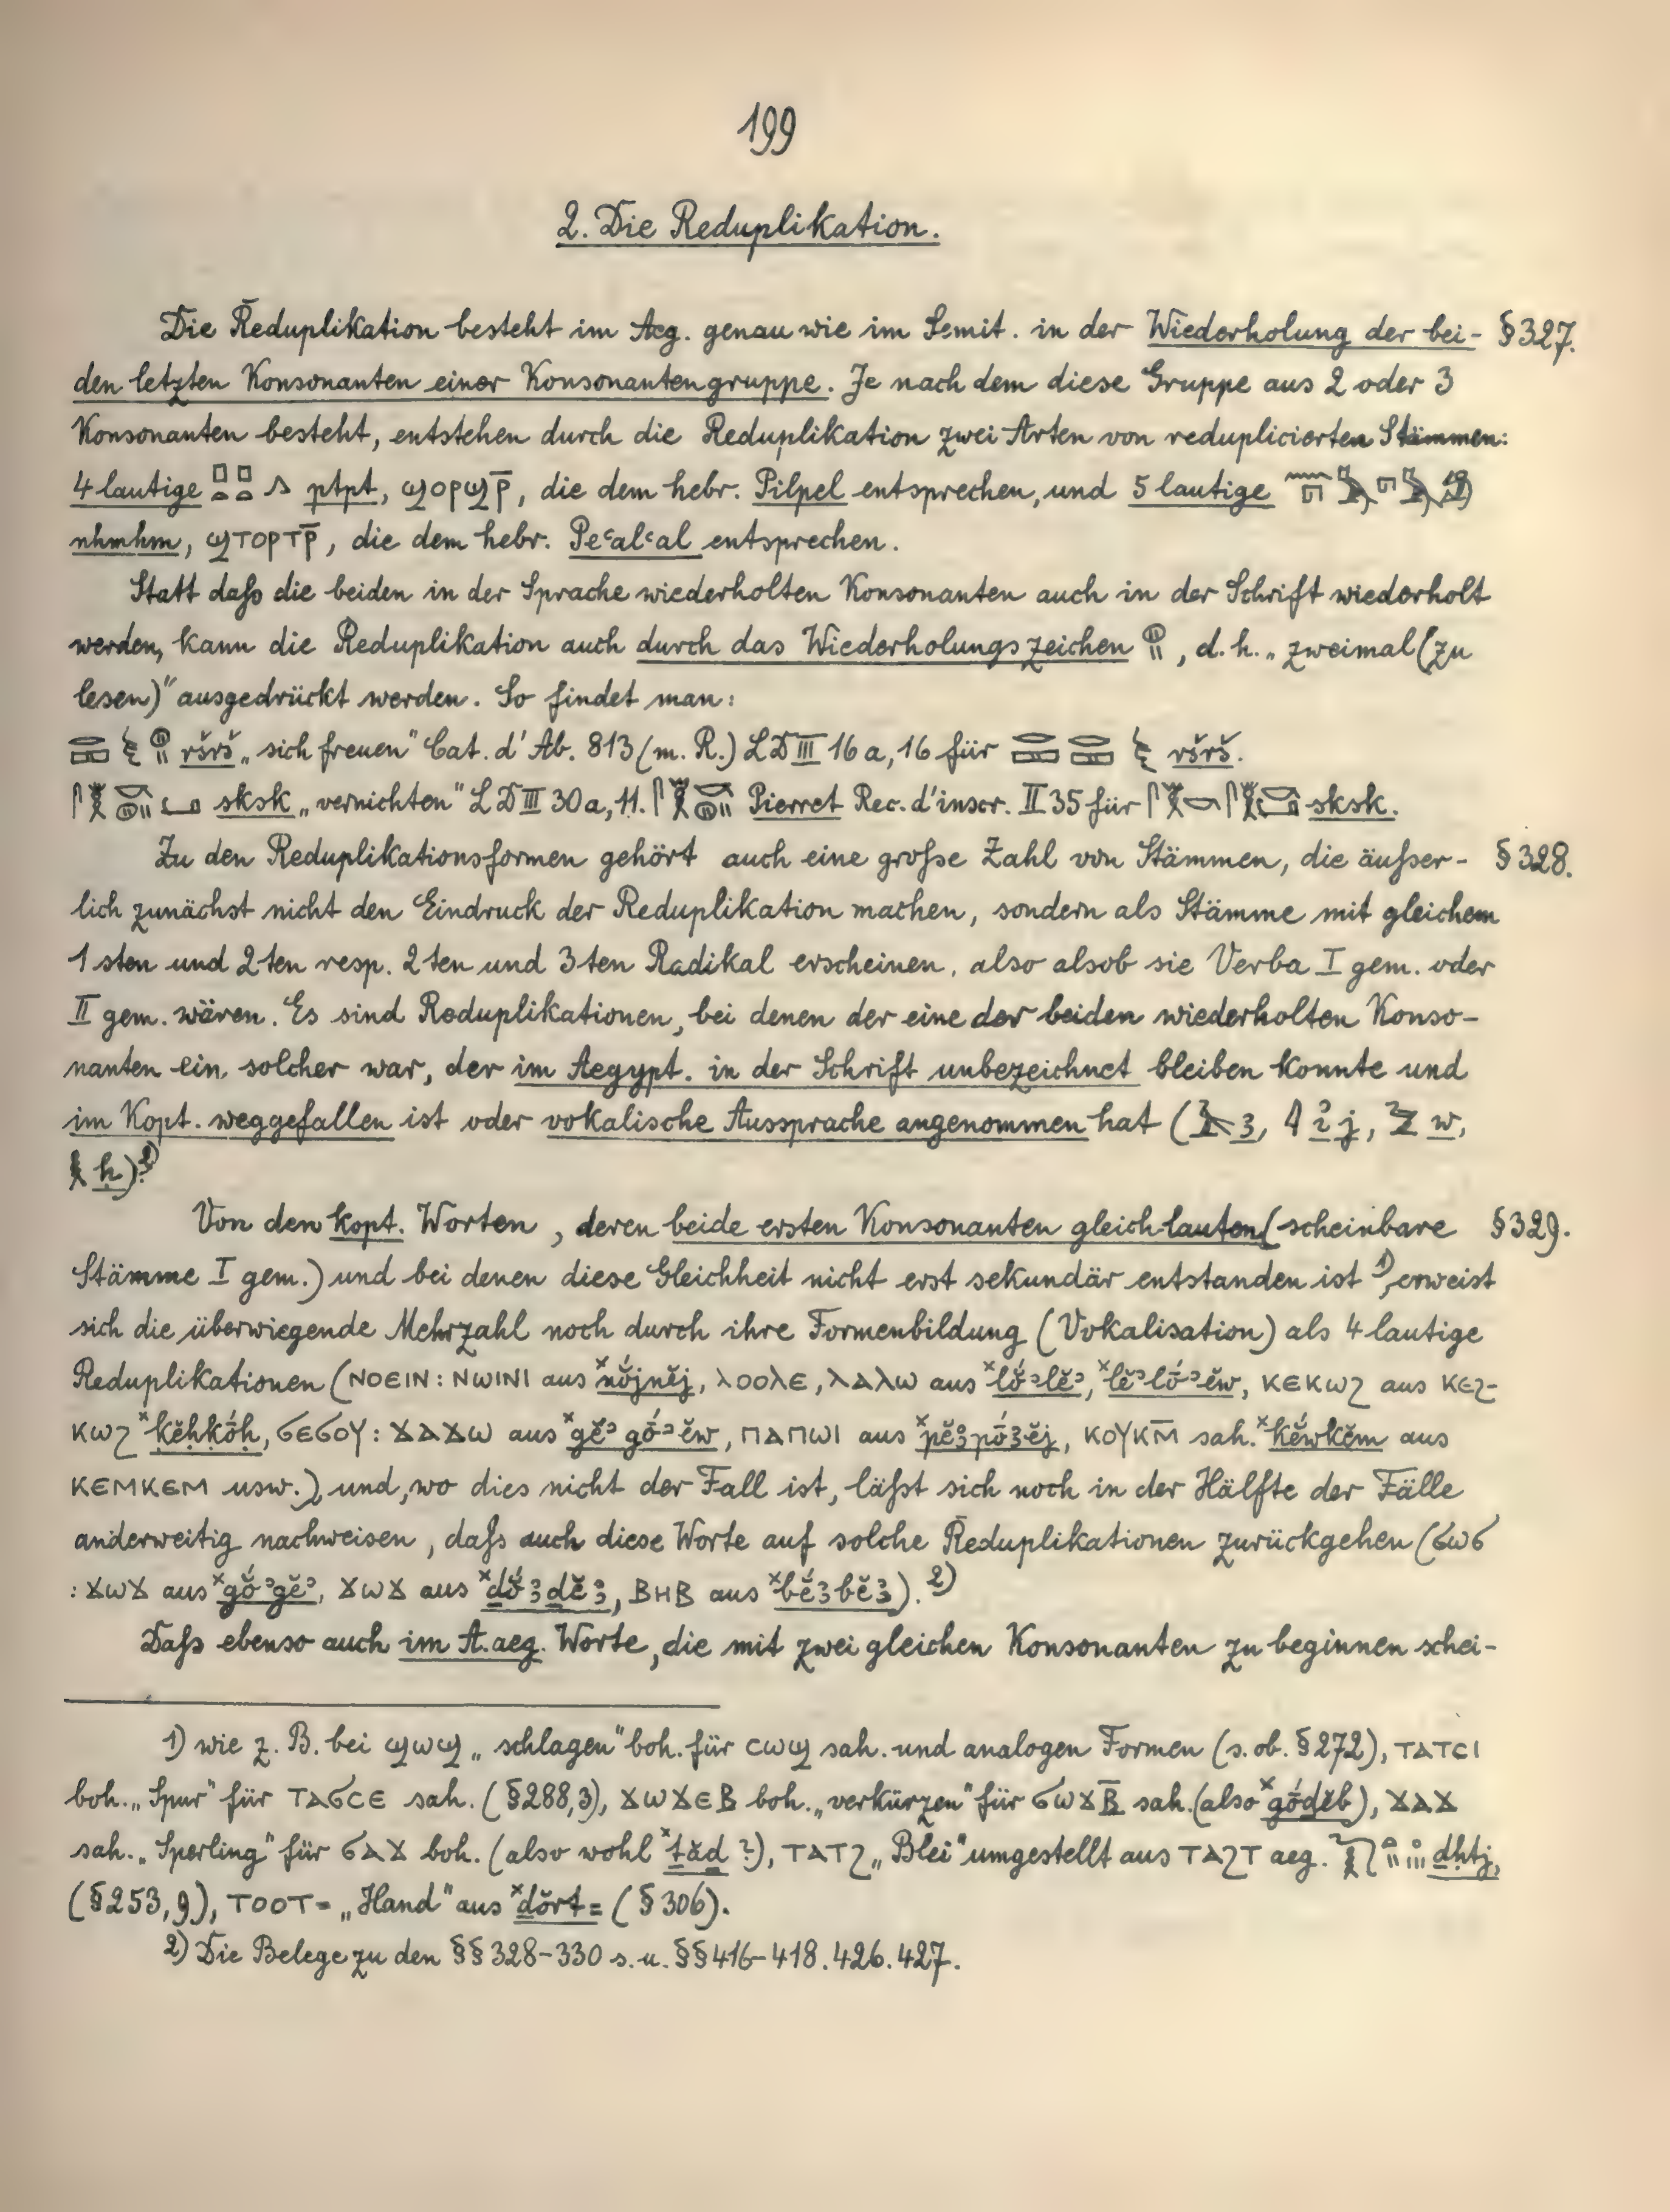 199
2. Die Reduplikation.
Die Reduplikation besteht im Aeg. genau wie im Semit. in der Wiederholung der bei- § 327.
den letzten Konsonanten einer Konsonantengruppe. Je nach dem diese Gruppe aus 2 oder 3
Konsonanten besteht, entstehen durch die Reduplikation zwei Arten von reduplicierten Stämmen:
4 lautige 𓊪𓏏𓊪𓏏𓂻 ptpt, ϣⲟⲣϣⲣ̅, die dem hebr. Pilpel entsprechen, und 5 lautige
nhmhm, ϣⲧⲟⲣⲧⲣ̅, die dem hebr. Peʿalʿal entsprechen.
Statt daſs die beiden in der Sprache wiederholten Konsonanten auch in der Schrift wiederholt
werden, kann die Reduplikation auch durch das Wiederholungszeichen 𓊗𓏭, d. h. „zweimal (zu
lesen)" ausgedrückt werden. So findet man:
ršrš „sich freuen" Cat. d'Ab. 813 (m. R.) LD III 16 a, 16 für ršrš.
sksk „vernichten" LD III 30 a, 11. Pierret Rec. d'inscr. II 35 für sksk.
Zu den Reduplikationsformen gehört auch eine groſse Zahl von Stämmen, die äuſser- § 328.
lich zunächst nicht den Eindruck der Reduplikation machen, sondern als Stämme mit gleichem
1sten und 2ten resp. 2ten und 3ten Radikal erscheinen, also alsob sie Verba I gem. oder
II gem. wären. Es sind Reduplikationen, bei denen der eine der beiden wiederholten Konso-
nanten ein solcher war, der im Aegypt. in der Schrift unbezeichnet bleiben konnte und
im Kopt. weggefallen ist oder vokalische Aussprache angenommen hat (𓄿 ꜣ, 𓇋 ỉ j, 𓅱 w,
𓎛 ḥ).²⁾
Von den kopt. Worten, deren beide ersten Konsonanten gleich lauten (scheinbare § 329.
Stämme I gem.) und bei denen diese Gleichheit nicht erst sekundär entstanden ist ¹⁾, erweist
sich die überwiegende Mehrzahl noch durch ihre Formenbildung (Vokalisation) als 4 lautige
Reduplikationen (ⲛⲟⲉⲓⲛ : ⲛⲱⲓⲛⲓ aus ˣnŏ́jnĕj, ⲗⲟⲟⲗⲉ, ⲗⲁⲗⲱ aus ˣlŏ́ʾlĕʾ, ˣlĕʾlṓʾĕw, ⲕⲉⲕⲱϩ aus ⲕⲉϩ-
ⲕⲱϩ ˣkĕḥkṓḥ, ϭⲉϭⲟⲩ : ϫⲁϫⲱ aus ˣgĕʾgṓʾĕw, ⲡⲁⲡⲱⲓ aus ˣpĕꜣpṓꜣĕj, ⲕⲟⲩⲕⲙ̅ sah. ˣkĕ́wkĕm aus
ⲕⲉⲙⲕⲉⲙ usw.), und, wo dies nicht der Fall ist, läſst sich noch in der Hälfte der Fälle
anderweitig nachweisen, daſs auch diese Worte auf solche Reduplikationen zurückgehen (ϭⲱϭ
: ϫⲱϫ aus ˣgṓʾgĕʾ, ϫⲱϫ aus ˣḏṓꜣḏĕꜣ, ⲃⲏⲃ aus ˣbḗꜣbĕꜣ).²⁾
Daſs ebenso auch im A. aeg. Worte, die mit zwei gleichen Konsonanten zu beginnen schei-
1) wie z. B. bei ϣⲱϣ „schlagen" boh. für ⲥⲱϣ sah. und analogen Formen (s. ob. § 272), ⲧⲁⲧⲥⲓ
boh. „Spur" für ⲧⲁϭⲥⲉ sah. (§ 288, 3), ϫⲱϫⲉⲃ boh. „verkürzen" für ϭⲱϫⲃ̅ sah. (also ˣgṓḏĕb), ϫⲁϫ
sah. „Sperling" für ϭⲁϫ boh. (also wohl ˣṯăḏ ?), ⲧⲁⲧϩ „Blei" umgestellt aus ⲧⲁϩⲧ aeg. ḏḥtj,
(§ 253, 9), ⲧⲟⲟⲧ= „Hand" aus ˣdŏrt= (§ 306).
2) Die Belege zu den §§ 328-330 s. u. §§ 416-418. 426. 427.